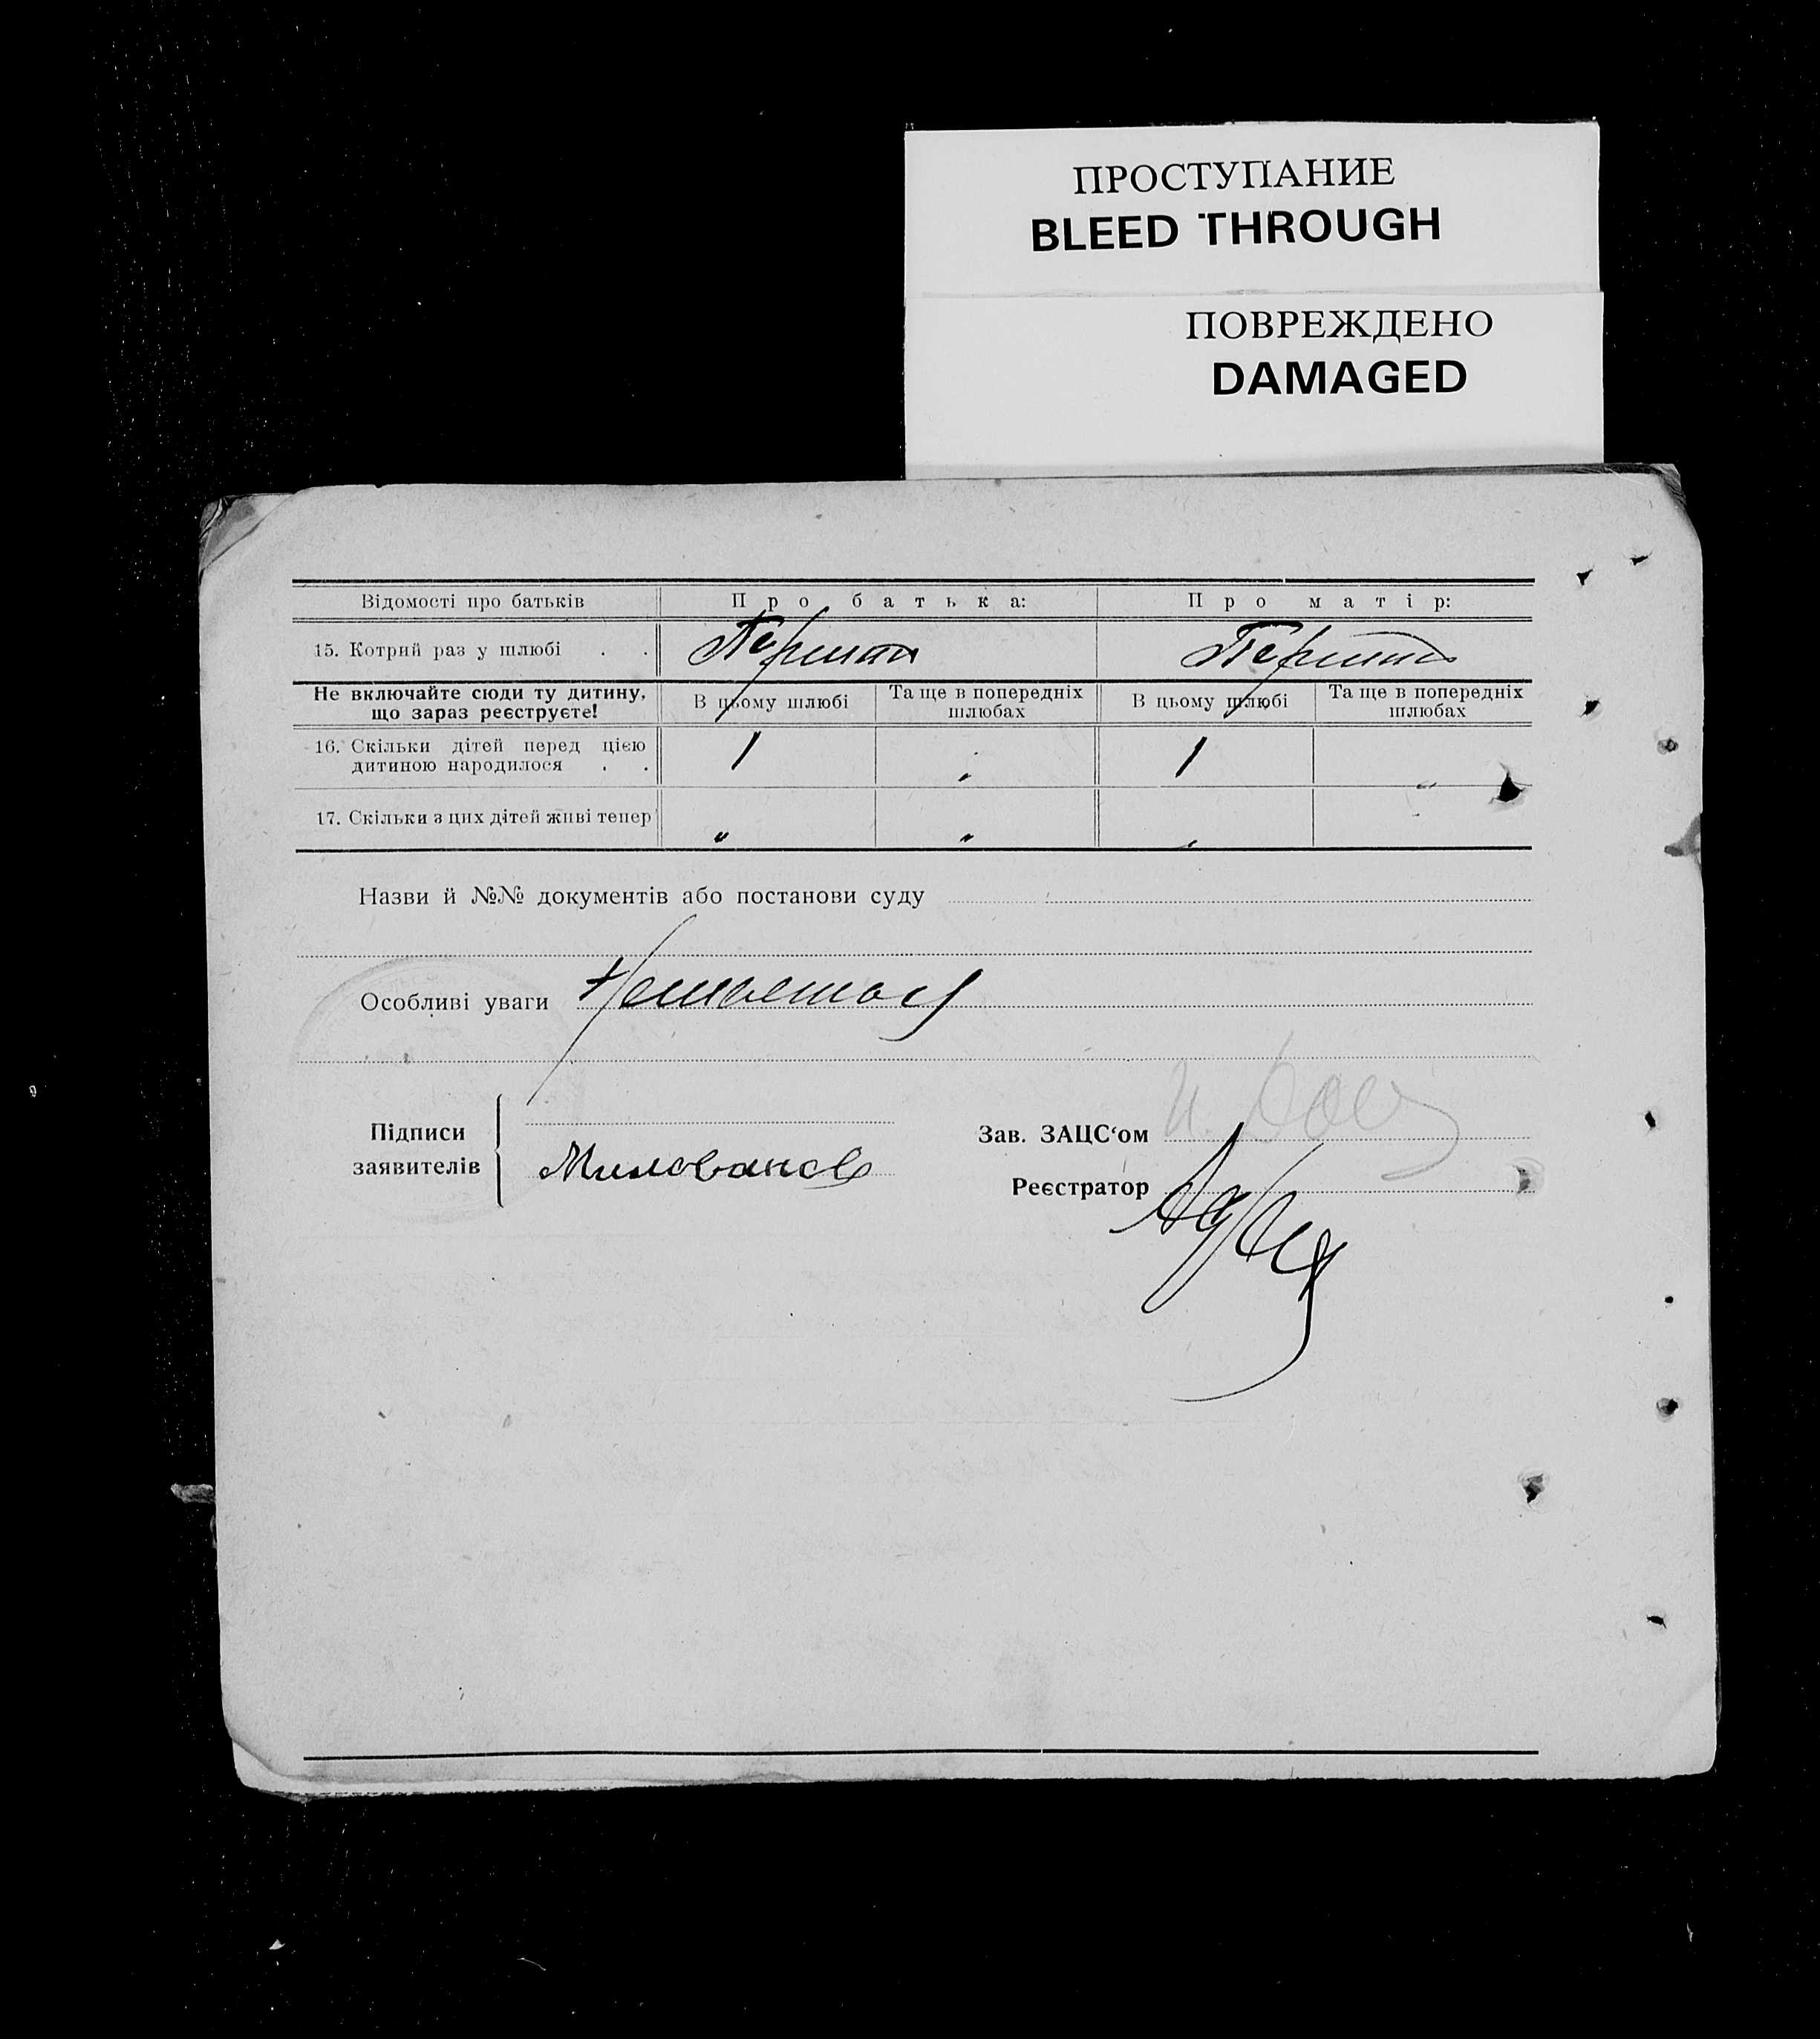 ПРОСТУПАНИЕ
BLEED THROUGH
ПОВРЕЖДЕНО
DAMAGED
Відомості про батьків Про батька: Про матір:
15. Котрий раз у шлюбі . . Перший Перший
Не включайте сюди ту дитину, що зараз реєструєте! В цьому шлюбі Та ще в попередніх шлюбах В цьому шлюбі Та ще в попередніх шлюбах
16. Скільки дітей перед цією дитиною народилося . . 1 „ 1 „
17. Скільки з цих дітей живі тепер „ „ „
Назви й №№ документів або постанови суду
Особливі уваги
Підписи заявителів Милованов
Зав. ЗАЦС‘ом
Реєстратор